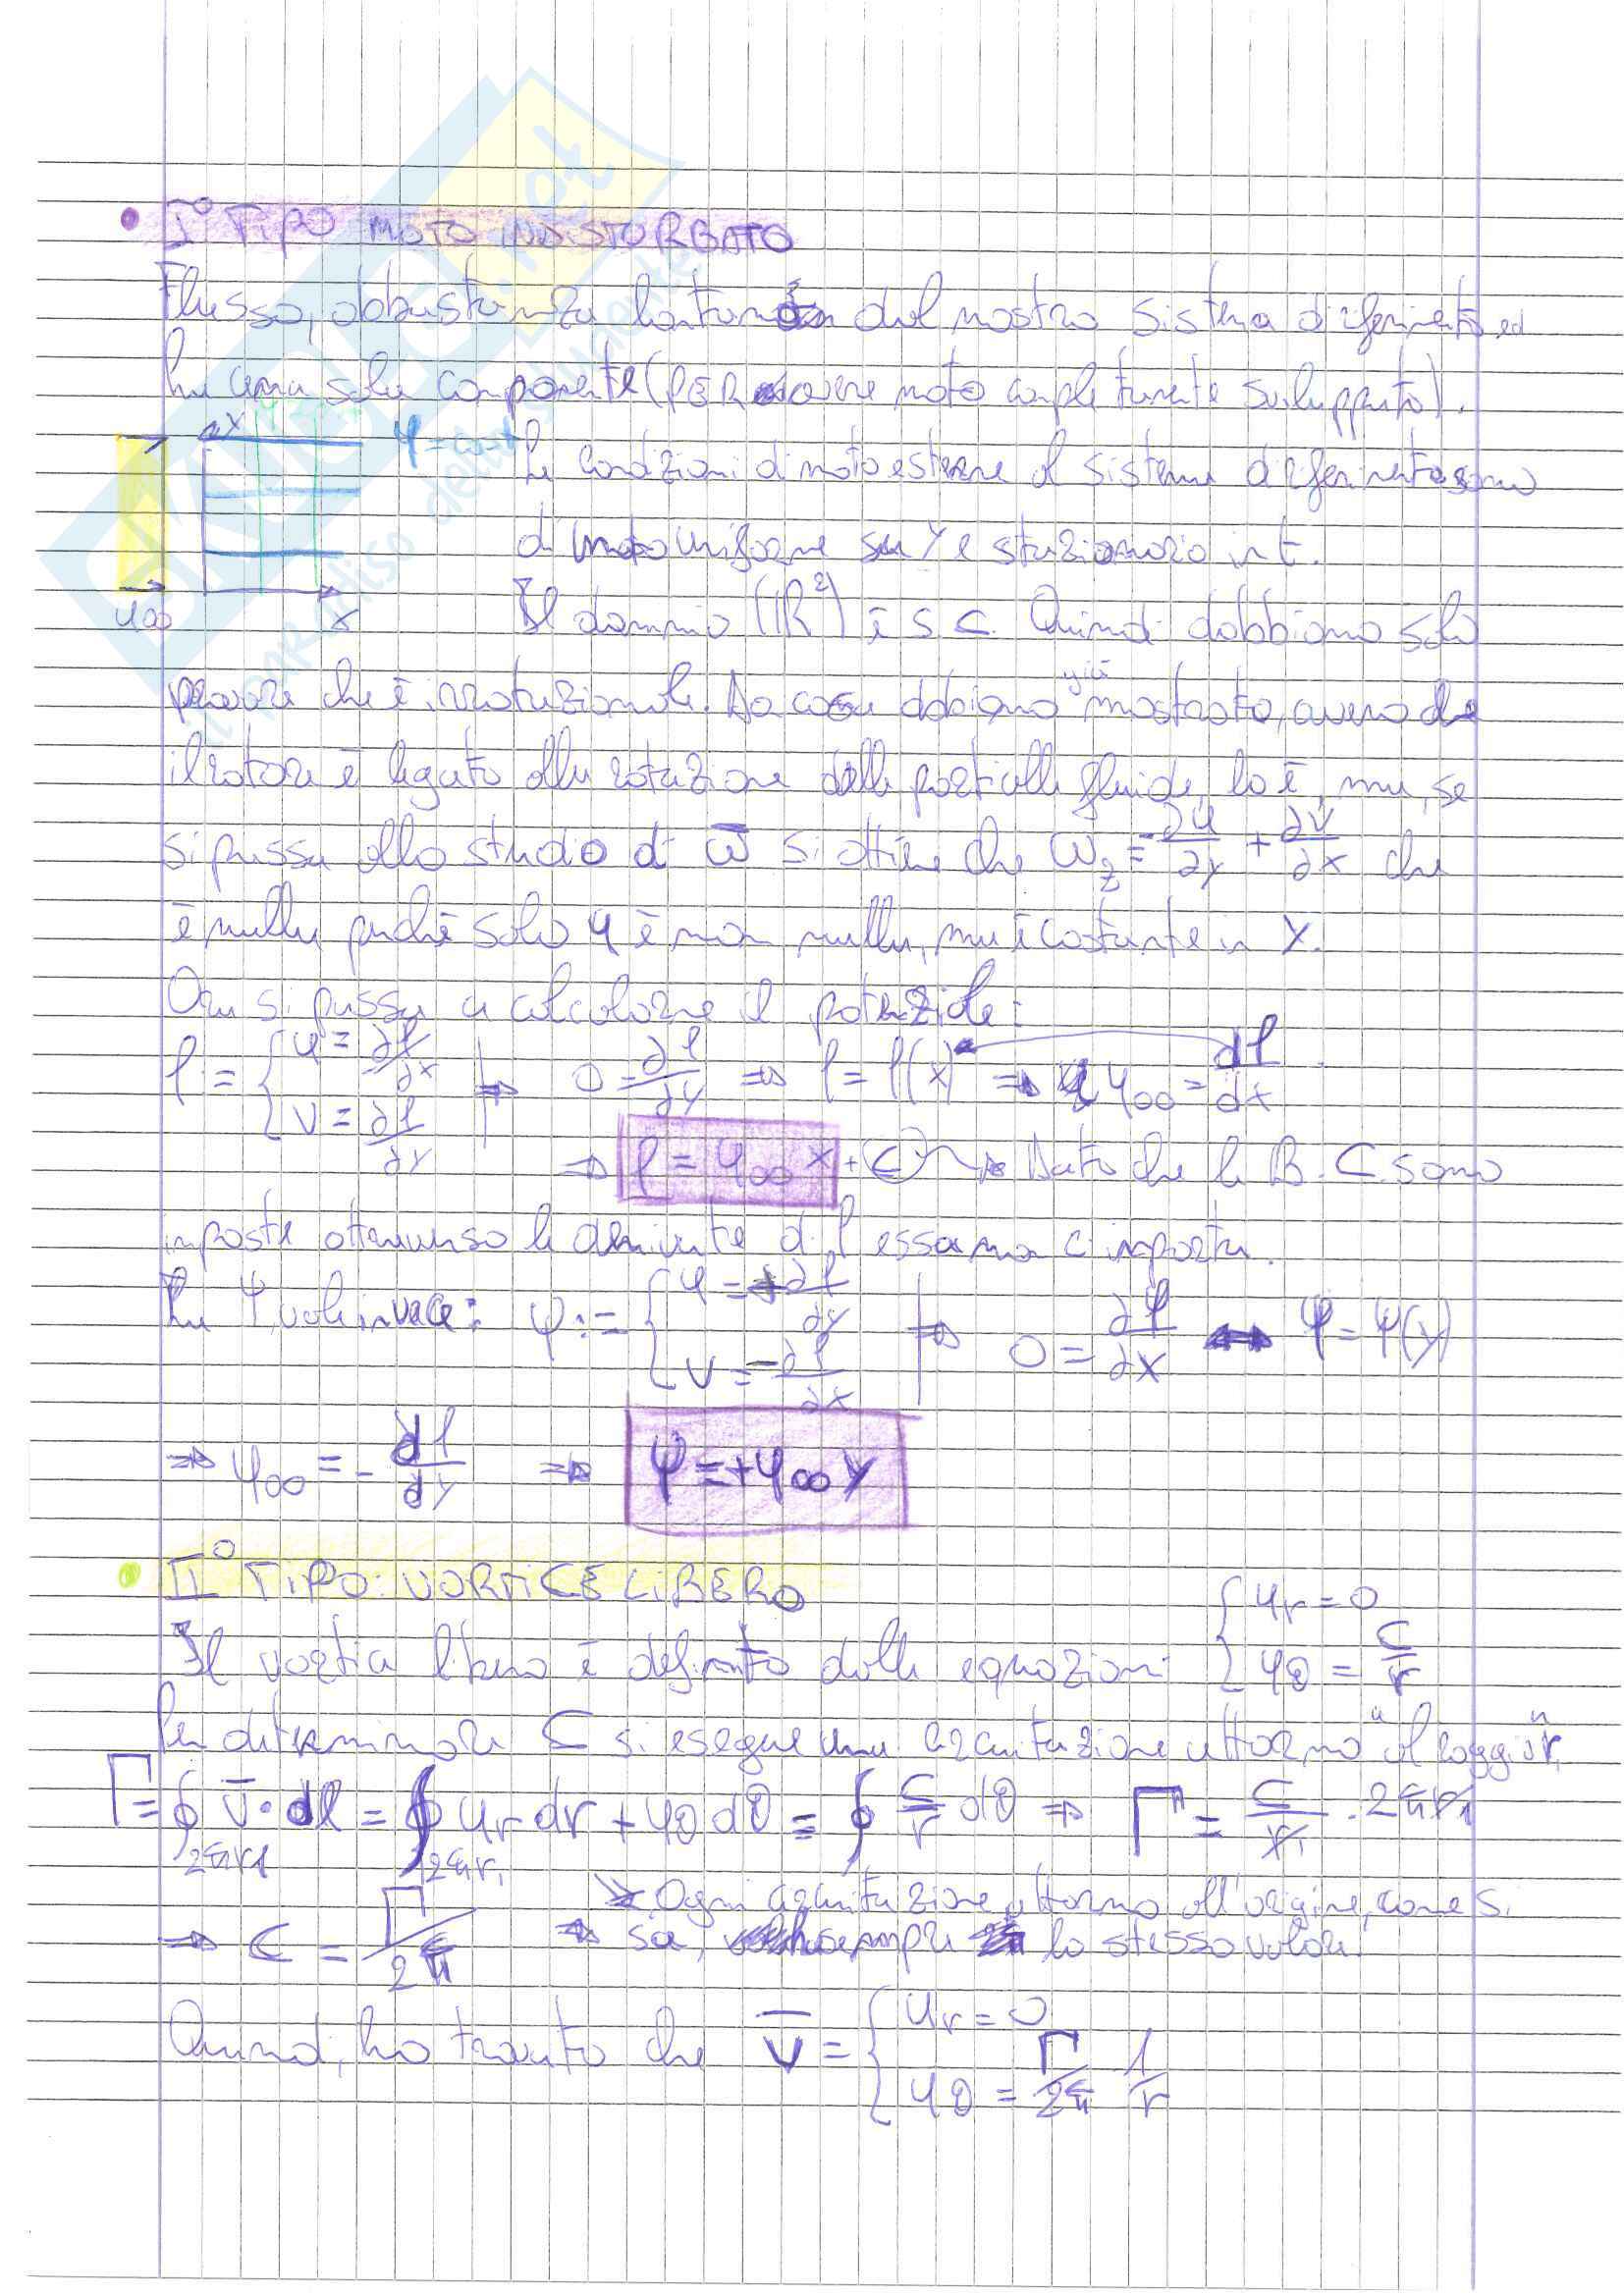 • I° TIPO MOTO INDISTURBATO
Flusso, abbastanza lontano dal nostro sistema di riferimento, ed
ha una sola componente (PER avere moto completamente sviluppato).
Y
ψ = cost
u∞
X
Le condizioni di moto esterne al sistema di riferimento sono
di moto uniforme su Y e stazionario in t.
Il dominio (ℝ²) è s.c. Quindi dobbiamo solo
provare che è irrotazionale. Da cosa abbiamo già mostrato, ovvero che
il rotore è legato alla rotazione delle particelle fluide, lo è, ma, se
si passa allo studio di ω̄ si ottiene che ω_z = -∂u/∂y + ∂v/∂x che
è nulla perché solo u è non nulla, ma è costante in Y.
Ora si passa a calcolare il potenziale:
φ := { u = ∂φ/∂x ; v = ∂φ/∂y | ⇒ 0 = ∂φ/∂y ⇒ φ = φ(x) ⇒ u∞ = dφ/dx
⇒ φ = u∞ x + C → Dato che le B.C. sono
imposte attraverso le derivate di φ essa non ci importa.
Per Ψ, vale invece: ψ := { u = +∂ψ/∂y ; v = -∂ψ/∂x | ⇒ 0 = ∂ψ/∂x ⇔ ψ = ψ(y)
⇒ u∞ = - dψ/dy ⇒ ψ = + u∞ y
• II° TIPO: VORTICE LIBERO
Il vortice libero è definito dalle equazioni { u_r = 0 ; u_θ = C/r
Per determinare C si esegue una circuitazione attorno "al raggio" r₁
Γ = ∮_{2πr₁} v̄ • dl = ∮_{2πr₁} u_r dr + u_θ dθ = ∮ C/r dθ ⇒ Γ = C/r₁ · 2πr₁
⇒ C = Γ/2π
⇒ Ogni circuitazione attorno all'origine, come si
sa, sempre lo stesso valore.
Quindi, ho trovato che v̄ = { u_r = 0 ; u_θ = Γ/2π 1/r